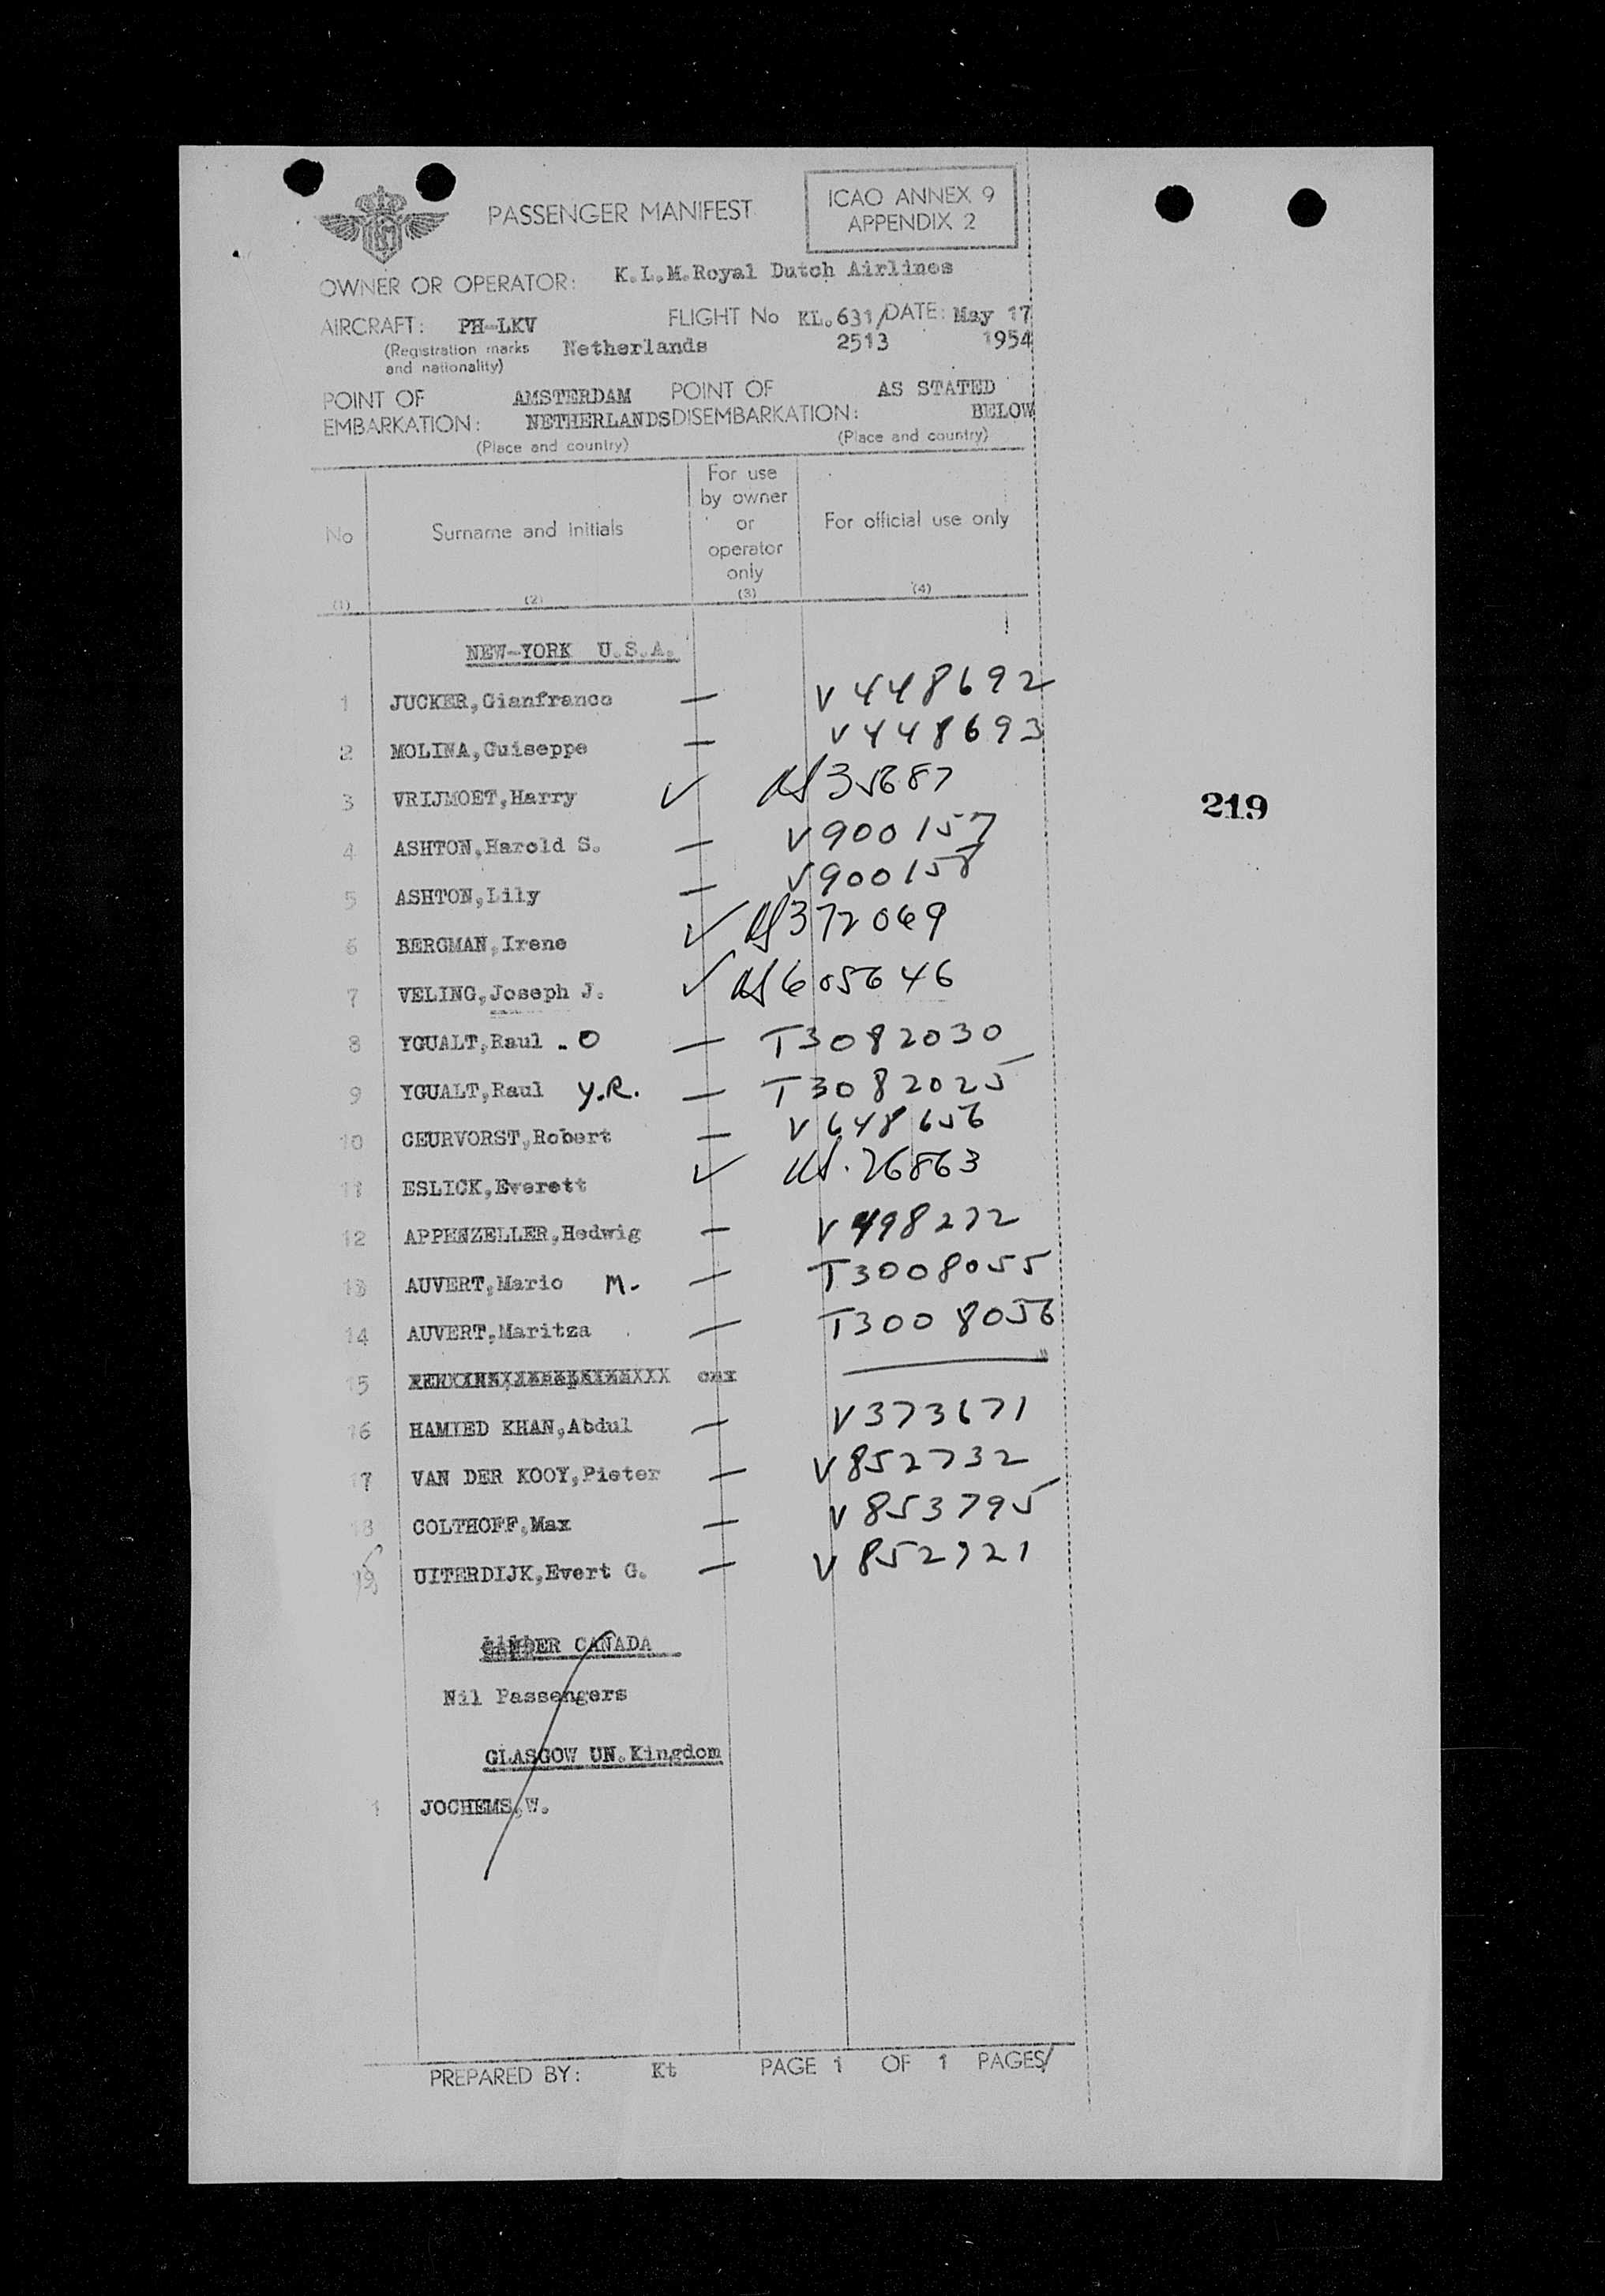 PASSENGER MANIFEST
ICAO ANNEX 9
APPENDIX 2
OWNER OR OPERATOR: K.L.M.Royal Dutch Airlines
AIRCRAFT: PH-LKV FLIGHT No KL.631/ DATE: May 17
(Registration marks and nationality) Netherlands 2513 1954
POINT OF EMBARKATION: AMSTERDAM NETHERLANDS POINT OF DISEMBARKATION: AS STATED BELOW
(Place and country) (Place and country)
No Surname and initials For use by owner or operator only For official use only
(1) (2) (3) (4)
NEW-YORK U.S.A.
1 JUCKER,Gianfranco — V448692
2 MOLINA,Guiseppe — V448693
3 VRIJMOET,Harry ✓ US 35687
4 ASHTON,Harold S. — V900157
5 ASHTON,Lily — V900158
6 BERGMAN,Irene ✓ US 372069
7 VELING,Joseph J. ✓ US 605646
8 YGUALT,Raul . O — T3082030
9 YGUALT,Raul Y.R. — T3082025
10 CEURVORST,Robert — V648656
11 ESLICK,Everett ✓ US. 26863
12 APPENZELLER,Hedwig — V498272
13 AUVERT,Mario M. — T3008055
14 AUVERT,Maritza — T3008056
15 cnx —
16 HAMIED KHAN,Abdul — V373671
17 VAN DER KOOY,Pieter — V852732
18 COLTHOFF,Max — V853795
19 UITERDIJK,Evert G. — V852721
GANDER CANADA
Nil Passengers
GLASGOW UN.Kingdom
1 JOCHEMS,W.
PREPARED BY: Kt PAGE 1 OF 1 PAGES/
219